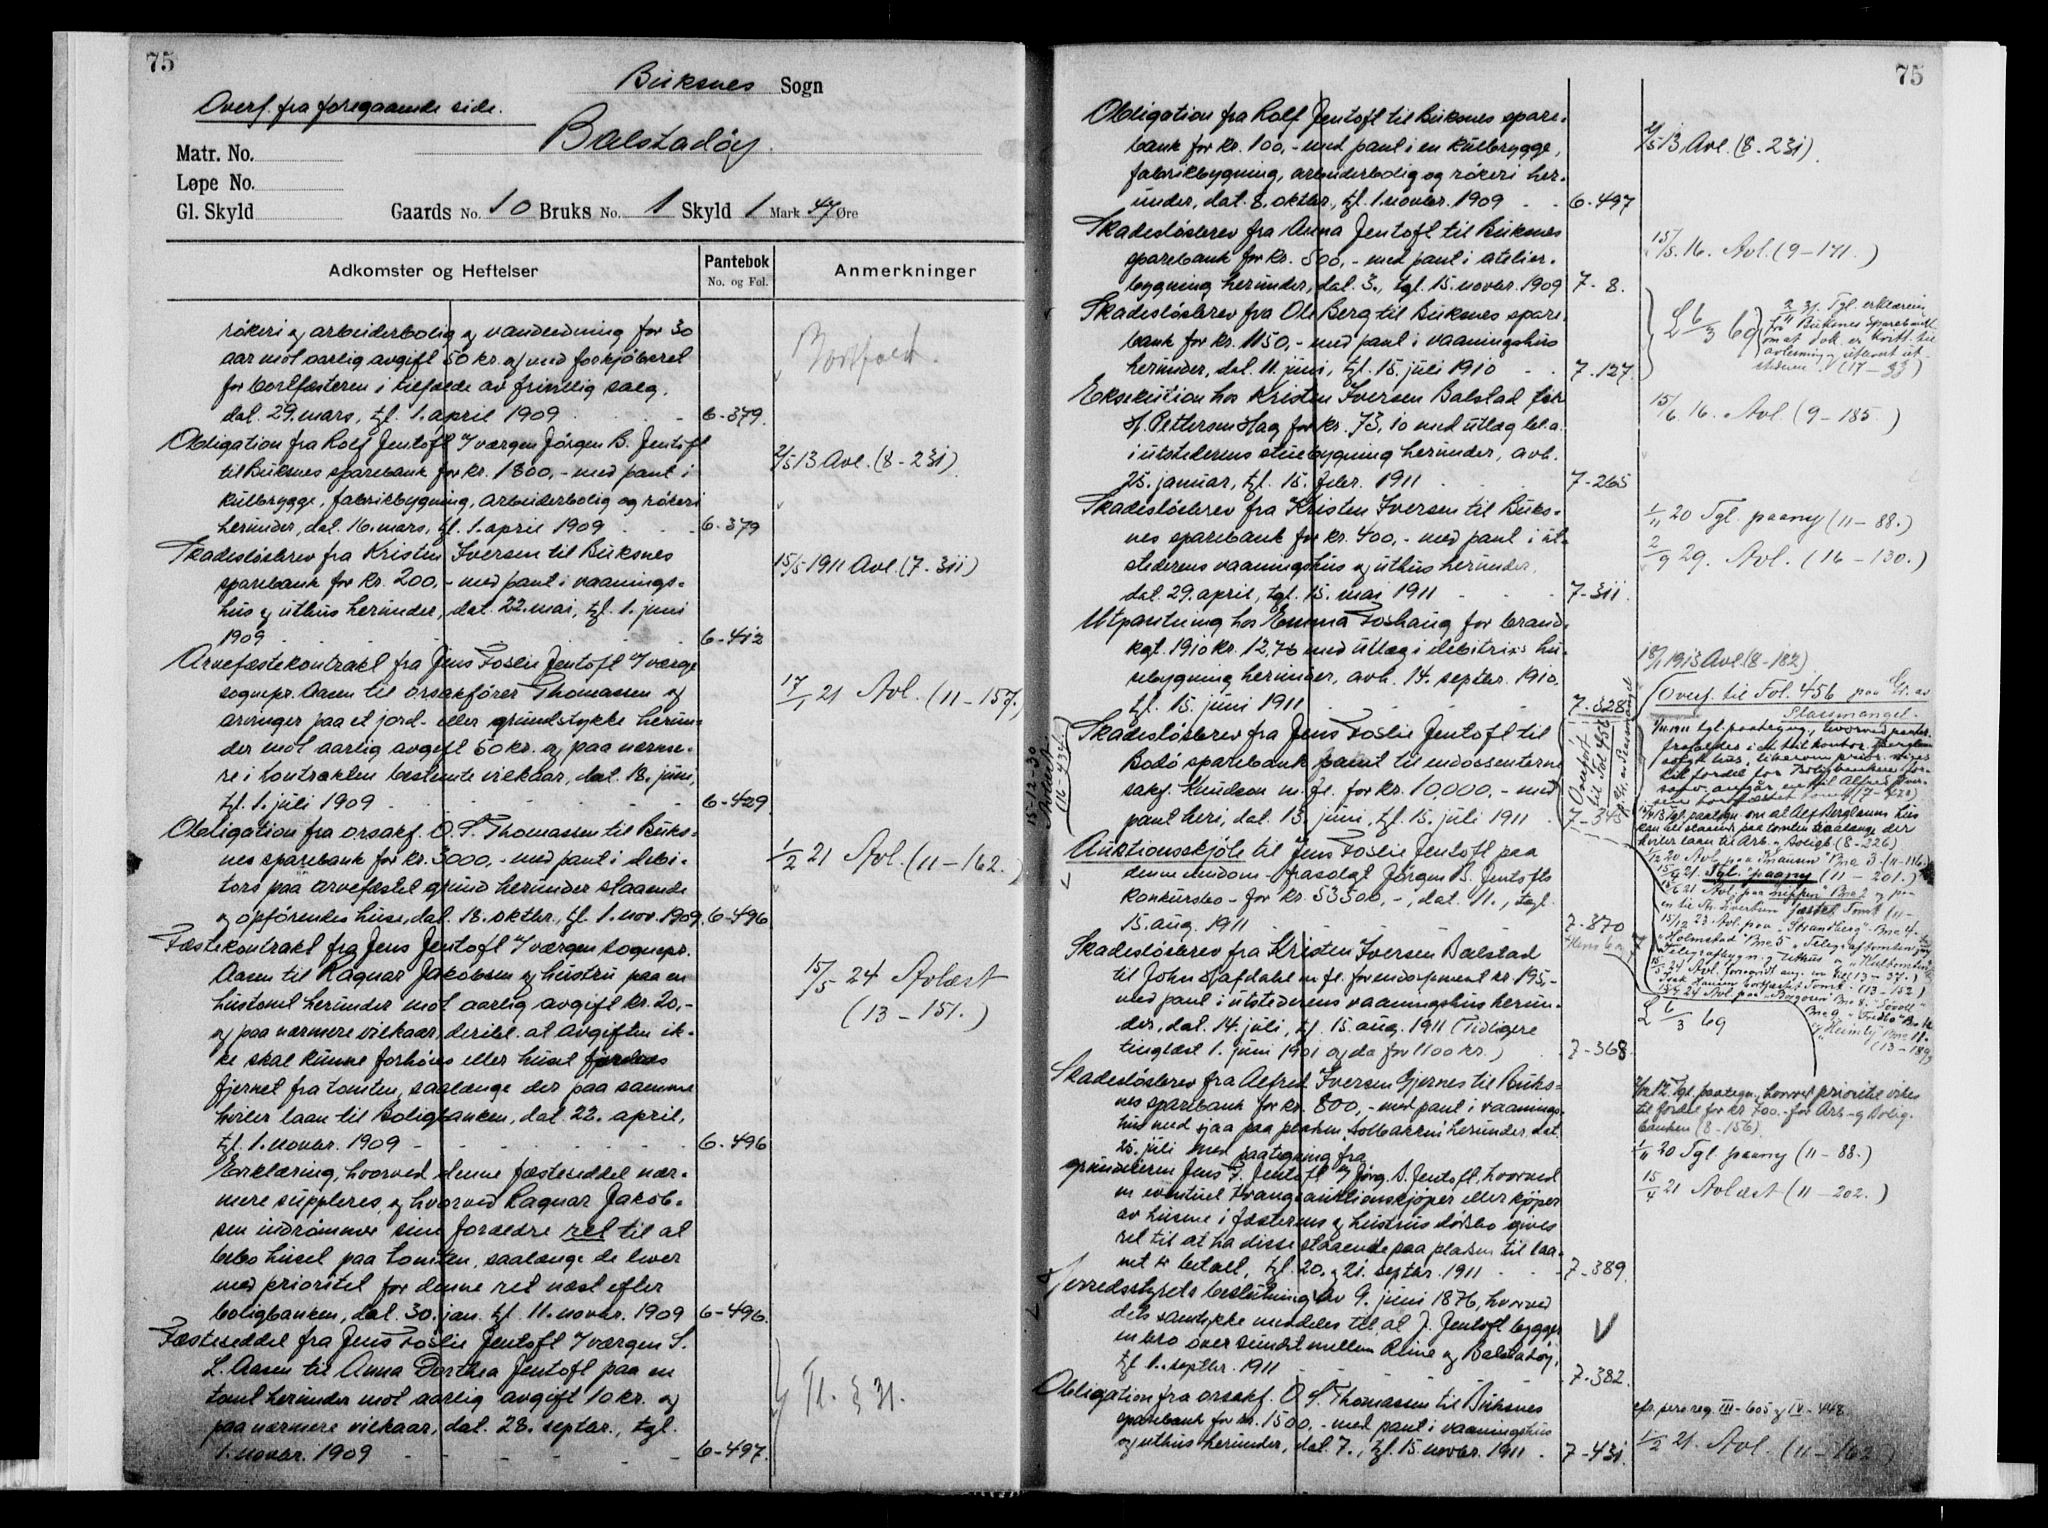 75
Buksnes Sogn
Overf. fra foregaaende side.
Balstadøy.
Matr. No.
Løpe No.
Gl. Skyld
Gaards No. 10 Bruks No. 1 Skyld 1 Mark 47 Øre
Adkomster og Heftelser
Pantebok
No. og Fol.
Anmerkninger
røkeri og arbeiderbolig og vandledning for 30
aar mot aarlig avgift 50 kr. og med forkjøbsret
for bortfæsteren i tilfælde av frivillig salg.
dat. 29. mars, tgl. 1. april 1909 6-379.
Bortfaldt.
Obligation fra Rolf Jentoft v/værgen Jørgen B. Jentoft
til Buksnes sparebank for kr. 1800,- med pant i
kulbrygge, fabrikbygning, arbeiderbolig og røkeri
herunder, dat. 16. mars, tgl. 1. april 1909 6-379
2/5 13 Avl. (8-231)
Skadesløsbrev fra Kristen Iversen til Buksnes
sparebank for kr. 200,- med pant i vaanings-
hus og uthus herunder, dat. 22. mai, tgl. 1. juni
1909 6-412
15/5 1911 Avl. (7-311)
Arvefæstekontrakt fra Jens Foslie Jentoft v/værge
sognepr. Aasen til orsakfører Thomassen og
arvinger paa et jord- eller grundstykke herun-
der mot aarlig avgift 50 kr. og paa nærme-
re i kontrakten bestemte vilkaar, dat. 18. juni,
tgl. 1. juli 1909 6-429
17/1 21 Avl. (11-157.)
Obligation fra orsakf. O. S. Thomassen til Buks-
nes sparebank for kr. 3000,- med pant i debi-
tors paa arvefæstet grund herunder staaende
og opførendes huse, dat. 18. oktbr., tgl. 1. nov. 1909. 6-496
1/2 21 Avl. (11-162.)
Fæstekontrakt fra Jens Jentoft v/værgen sognepr.
Aasen til Ragnar Jakobsen og hustru paa en
hustomt herunder mot aarlig avgift kr. 20,-
og paa nærmere vilkaar, deribl. at avgiften ik-
ke skal kunne forhøies eller huset fjerdes
fjernet fra tomten, saalænge der paa samme
hviler laan til Boligbanken, dat. 22. april,
tgl. 1. novbr. 1909 6-496
15/5 24 Avlæst
(13-151.)
Erklæring, hvorved denne fæsteseddel nær-
mere suppleres, og hvorved Ragnar Jakob-
sen indrømmer sine forældre ret til at
bebo huset paa tomten, saalænge de lever
med prioritet for denne ret næst efter
boligbanken, dat. 30. jan. tgl. 11. novbr. 1909 6-496.
Fæsteseddel fra Jens Foslie Jentoft v/værgen S.
L. Aasen til Anna Dorthea Jentoft paa en
tomt herunder mot aarlig avgift 10 kr. og
paa nærmere vilkaar, dat. 28. septbr., tgl.
1. novbr. 1909 6-497.
Tl. § 31.
75
Obligation fra Rolf Jentoft til Buksnes spare-
bank for kr. 100,- med pant i en kulbrygge,
fabrikbygning, arbeiderbolig og røkeri her-
under, dat. 8. oktbr., tgl. 1. novbr. 1909 6-497
2/5 13 Avl. (8-231).
Skadesløsbrev fra Anna Jentoft til Buksnes
sparebank for kr. 500,- med pant i atelier-
bygning herunder, dat. 3., tgl. 15. novbr. 1909 7-8.
15/5 16. Avl. (9-171.)
Skadesløsbrev fra Ole Berg til Buksnes spare-
bank for kr. 1150,- med pant i vaaningshus
herunder, dat. 11. juni, tgl. 15. juli 1910 7-127.
L 6/3 69
31. Tgl. erklæring
fra Buksnes Sparebank
om at dok. er kvitt. til
avlesning og utlevert ut-
stederen (17-33)
Eksekution hos Kristen Iversen Balstad for
H. Pettersen Hag for kr. 73,10 med utlæg bl.a.
i utstederens stuebygning herunder, avh.
25. januar, tgl. 15. febr. 1911 7-265
15/6 16. Avl (9-185.)
Skadesløsbrev fra Kristen Iversen til Buks-
nes sparebank for kr. 400,- med pant i ut-
stederens vaaningshus og uthus herunder,
dat. 29. april, tgl. 15. mai 1911 7-311.
1/11 20 Tgl. paany (11-88.)
2/9 29. Avl. (16-130.)
Utpantning hos Emma Foshaug for brand-
kgt. 1910 kr. 12,76 med utlæg i debitricis hu-
sebygning herunder, avh. 14. septbr. 1910,
tgl. 15. juni 1911 7-328
18/1 1913 Avl. (8-182)
Skadesløsbrev fra Jens Foslie Jentoft til
Bodø sparebank samt til endossenterne
sakf. Knudson m. fl. for kr. 10,000,- med
pant heri, dat. 13. juni, tgl. 15. juli 1911 7-345
15-12-30
Avlæst.
(16-433)
Overført
til Fol 456
paa Gr. av Plassmangel
Overf. til Fol. 456 paa Gr. av
Plassmangel.
Auktionsskjøte til Jens Foslie Jentoft paa
denne eiendom - frasolgt Jørgen B. Jentofts
konkursbo - for kr. 53500,-, dat. 11., tgl.
15. aug. 1911 7-370
Skadesløsbrev fra Kristen Iversen Balstad
til John Hafdahl m fl. for endossement kr. 195,-
med pant i utstederens vaaningshus herun-
der, dat. 14. juli, tgl. 15. aug. 1911 (Tidligere
tinglæst 1. juni 1901 og da for 1100 kr.) 7-368
L 6/3 69
Skadesløsbrev fra Alfred Iversen Gjernes til Buks-
nes sparebank for kr. 800,- med pant i vaanings-
hus med sjaa paa pladsen Solbakken herunder, dat.
25. juli med paategning fra
grundeieren Jens F. Jentoft og Jørg. B. Jentoft, hvorved
en eventuel tvangsauktionskjøper eller kjøper
av husene i fæsterens og hustrus dødsbo gives
ret til at ha disse staaende paa pladsen til laa-
net er betalt, tgl. 20. og 21. septbr. 1911 7-389.
tgl. paategn., hvorved prioritet vikes
til fordel for kr 700.- for Arb.- og Bolig-
banken (8-156).
1/11 20 Tgl. paany (11-88.)
15/4 21 Avlæst (11-202.)
Herredsstyrets beslutning av 9. juni 1876, hvorved
dets samtykke meddeles til at J. Jentoft bygger
en bro over sundet mellem Reine og Balstadøy,
tgl 1. septbr. 1911 7-382.
V
Obligation fra orsakf. O. S. Thomassen til Buksnes
sparebank for kr. 1500,- med pant i vaaningshus
og uthus herunder, dat. 7., tgl. 15. novbr. 1911 7-431.
cfr. pers reg. III-605 og IV-448
1/2 21. Avl. (11-162)